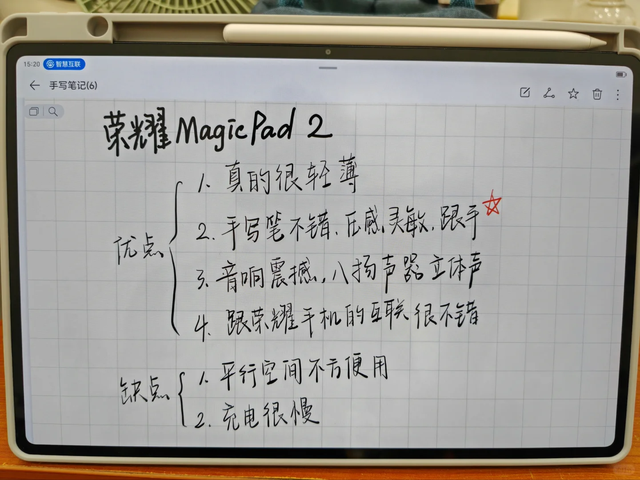 15:20 智慧互联
手写笔记(6)
荣耀MagicPad 2
优点
1. 真的很轻薄
2. 手写笔不错、压感、灵敏、跟手
3. 音响震撼，八扬声器立体声
4. 跟荣耀手机的互联很不错
缺点
1. 平行空间不方便用
2. 充电很慢